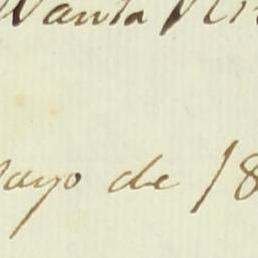 Santa Ri
ayo de 18